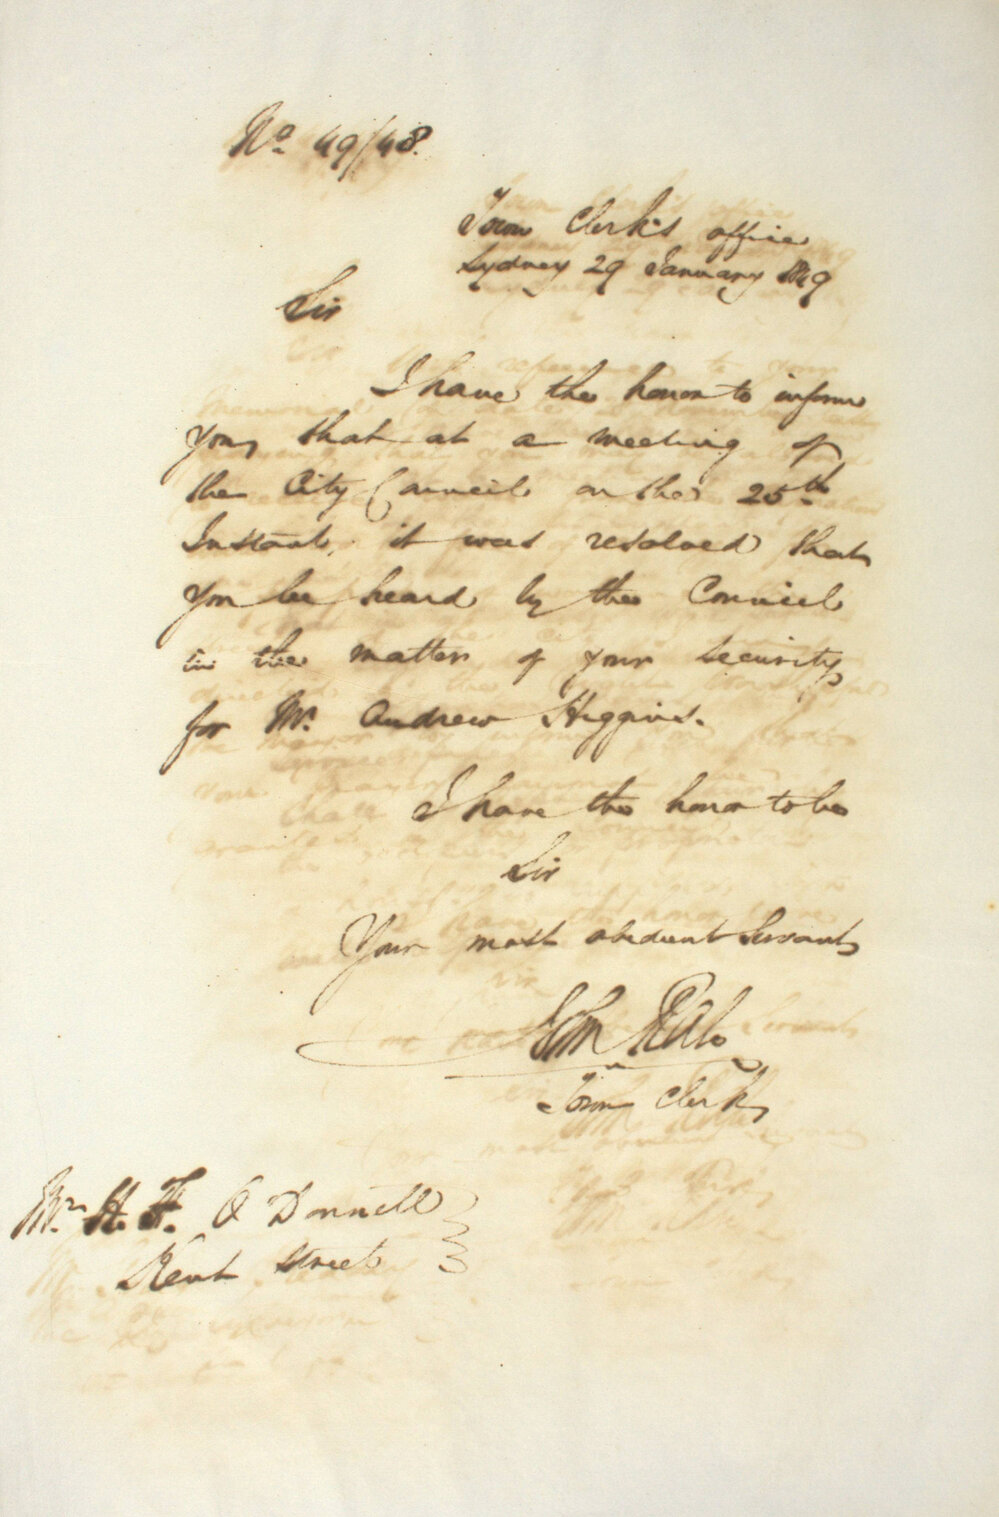 No. 49/48.
Town Clerk's office
Sydney 29 January 1849
Sir
I have the honor to inform
you, that at a meeting of
the City Council on the 25th
Instant, it was resolved that
you be heard by the Council
in the matter of your security
for Mr. Andrew Higgins.
I have the honor to be
Sir
Your most obedient Servant
John
Town Clerk
Mr. H. F. O'Donnell
Kent Street